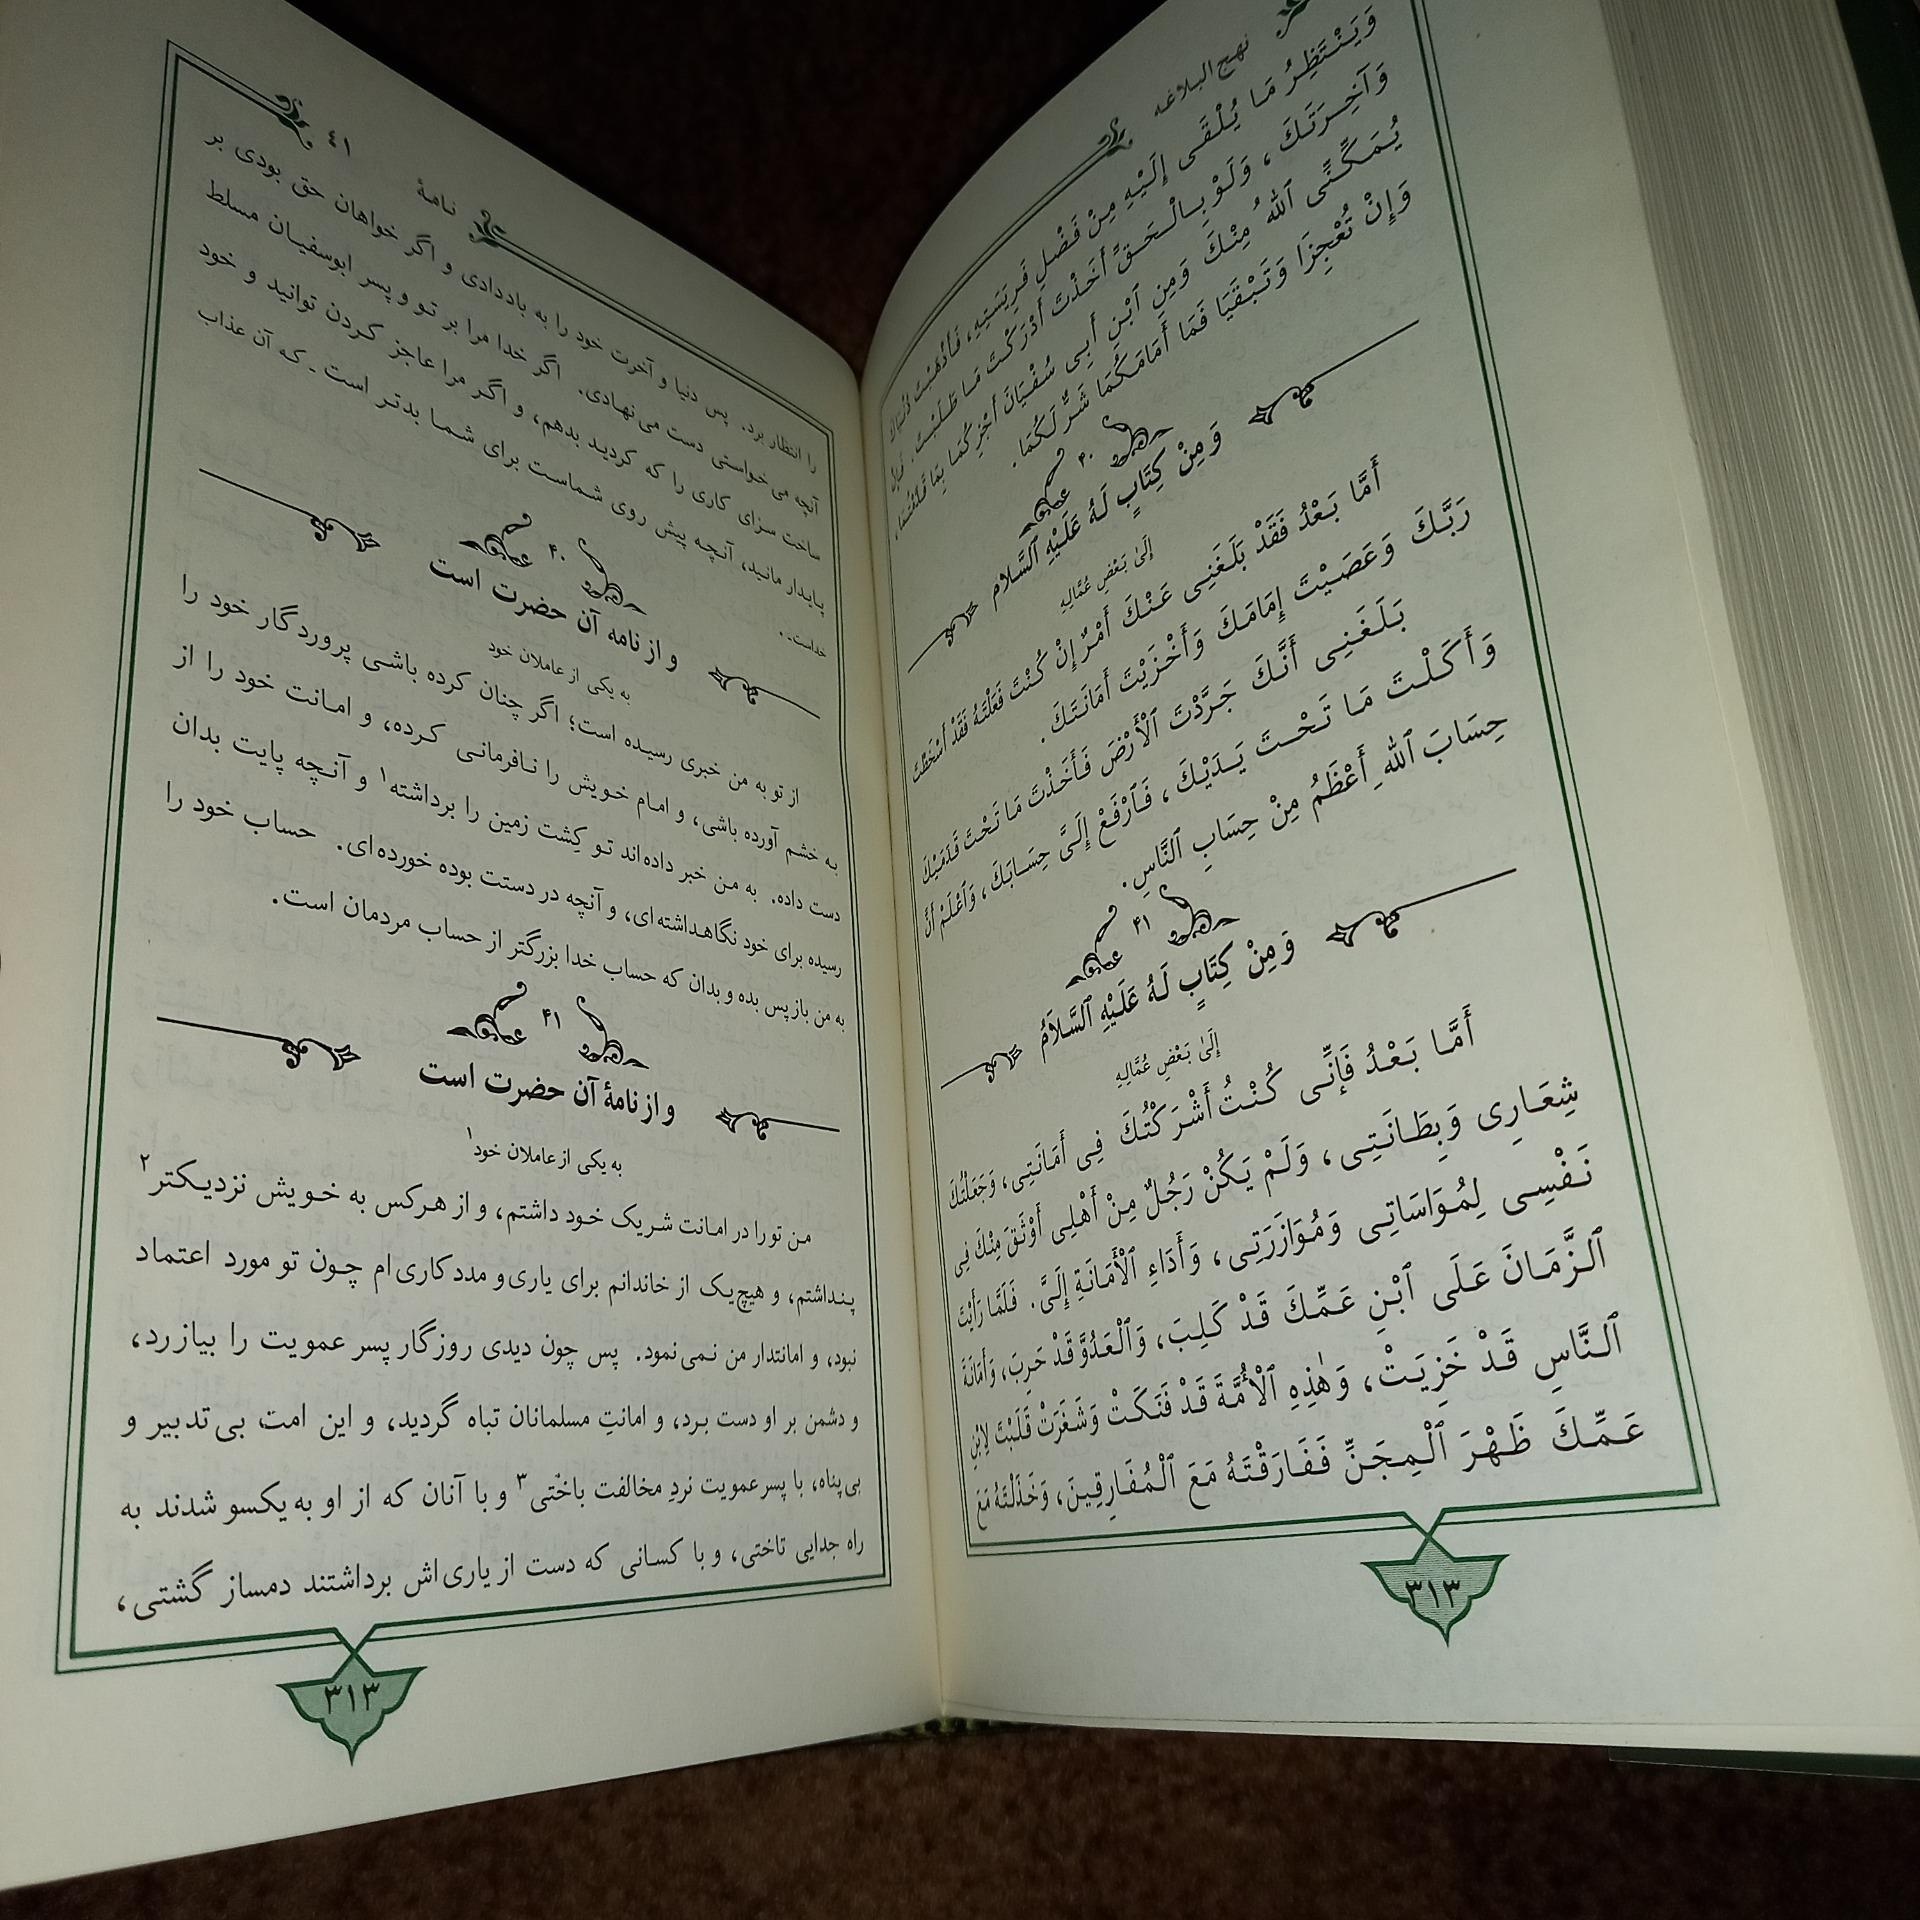 نهج البلاغه
وَيَنْتَظِرُ مَا يُلْقَى إِلَيْهِ مِنْ فَضْلِ فَرِيسَتِهِ، فَأَذْهَبْتَ دُنْيَاكَ
وَآخِرَتَكَ، وَلَوْ بِالْحَقِّ أَخَذْتَ أَدْرَكْتَ مَا طَلَبْتَ. فَإِن
يُمَكِّنِّى ٱللهُ مِنْكَ وَمِنِ ٱبْنِ أَبِى سُفْيَانَ أَجْزِكُمَا بِمَا قَدَّمْتُمَا،
وَإِنْ تُعْجِزَا وَتَبْقَيَا فَمَا أَمَامَكُمَا شَرٌّ لَكُمَا.
۴۰
وَمِنْ كِتَابٍ لَهُ عَلَيْهِ ٱلسَّلام
إِلىٰ بَعْضِ عُمَّالِهِ
أَمَّا بَعْدُ فَقَدْ بَلَغَنِى عَنْكَ أَمْرٌ إِنْ كُنْتَ فَعَلْتَهُ فَقَدْ أَسْخَطْتَ
رَبَّكَ وَعَصَيْتَ إِمَامَكَ وَأَخْزَيْتَ أَمَانَتَكَ.
بَلَغَنِى أَنَّكَ جَرَّدْتَ ٱلْأَرْضَ فَأَخَذْتَ مَا تَحْتَ قَدَمَيْكَ
وَأَكَلْتَ مَا تَحْتَ يَدَيْكَ، فَٱرْفَعْ إِلَىَّ حِسَابَكَ، وَٱعْلَمْ أَنَّ
حِسَابَ ٱللهِ أَعْظَمُ مِنْ حِسَابِ ٱلنَّاسِ.
۴۱
وَمِنْ كِتَابٍ لَهُ عَلَيْهِ ٱلسَّلاَمُ
إِلىٰ بَعْضِ عُمَّالِهِ
أَمَّا بَعْدُ فَإِنِّى كُنْتُ أَشْرَكْتُكَ فِى أَمَانَتِى، وَجَعَلْتُكَ
شِعَارِى وَبِطَانَتِى، وَلَمْ يَكُنْ رَجُلٌ مِنْ أَهْلِى أَوْثَقَ مِنْكَ فِى
نَفْسِى لِمُوَاسَاتِى وَمُوَازَرَتِى، وَأَدَاءِ ٱلْأَمَانَةِ إِلَىَّ. فَلَمَّا رَأَيْتَ
ٱلزَّمَانَ عَلَى ٱبْنِ عَمِّكَ قَدْ كَلِبَ، وَٱلْعَدُوَّ قَدْ حَرِبَ، وَأَمَانَةَ
ٱلنَّاسِ قَدْ خَزِيَتْ، وَهٰذِهِ ٱلْأُمَّةَ قَدْ فَنَكَتْ وَشَغَرَتْ قَلَبْتَ لِابْنِ
عَمِّكَ ظَهْرَ ٱلْمِجَنِّ فَفَارَقْتَهُ مَعَ ٱلْمُفَارِقِينَ، وَخَذَلْتَهُ مَعَ
٣١٣
نامهٔ ٤١
را انتظار برد. پس دنيا و آخرت خود را به باد دادی و اگر خواهان حق بودی بر
آنچه می‌خواستی دست می‌نهادی. اگر خدا مرا بر تو و پسر ابوسفيان مسلط
ساخت سزای کاری را که کرديد بدهم، و اگر مرا عاجز کردن توانيد و خود
پايدار مانيد، آنچه پيش روی شماست برای شما بدتر است ـ که آن عذاب
خداست ـ .
۴۰
و از نامه آن حضرت است
به يکی از عاملان خود
از تو به من خبری رسيده است؛ اگر چنان کرده باشی پروردگار خود را
به خشم آورده باشی، و امام خويش را نافرمانی کرده، و امانت خود را از
دست داده. به من خبر داده‌اند تو کِشت زمين را برداشته۱ و آنچه پايت بدان
رسيده برای خود نگاهداشته‌ای، و آنچه در دستت بوده خورده‌ای. حساب خود را
به من بازپس بده و بدان که حساب خدا بزرگتر از حساب مردمان است.
۴۱
و از نامهٔ آن حضرت است
به يکی از عاملان خود۱
من تو را در امانت شريک خود داشتم، و از هرکس به خويش نزديکتر۲
پنداشتم، و هيچ‌يک از خاندانم برای ياری و مددکاری‌ام چون تو مورد اعتماد
نبود، و امانتدار من نمی‌نمود. پس چون ديدی روزگار پسر عمويت را بيازرد،
و دشمن بر او دست برد، و امانتِ مسلمانان تباه گرديد، و اين امت بی‌تدبير و
بی‌پناه، با پسر عمويت نردِ مخالفت باختی۳ و با آنان که از او به يکسو شدند به
راه جدايی تاختی، و با کسانی که دست از ياری‌اش برداشتند دمساز گشتی،
٣١٣